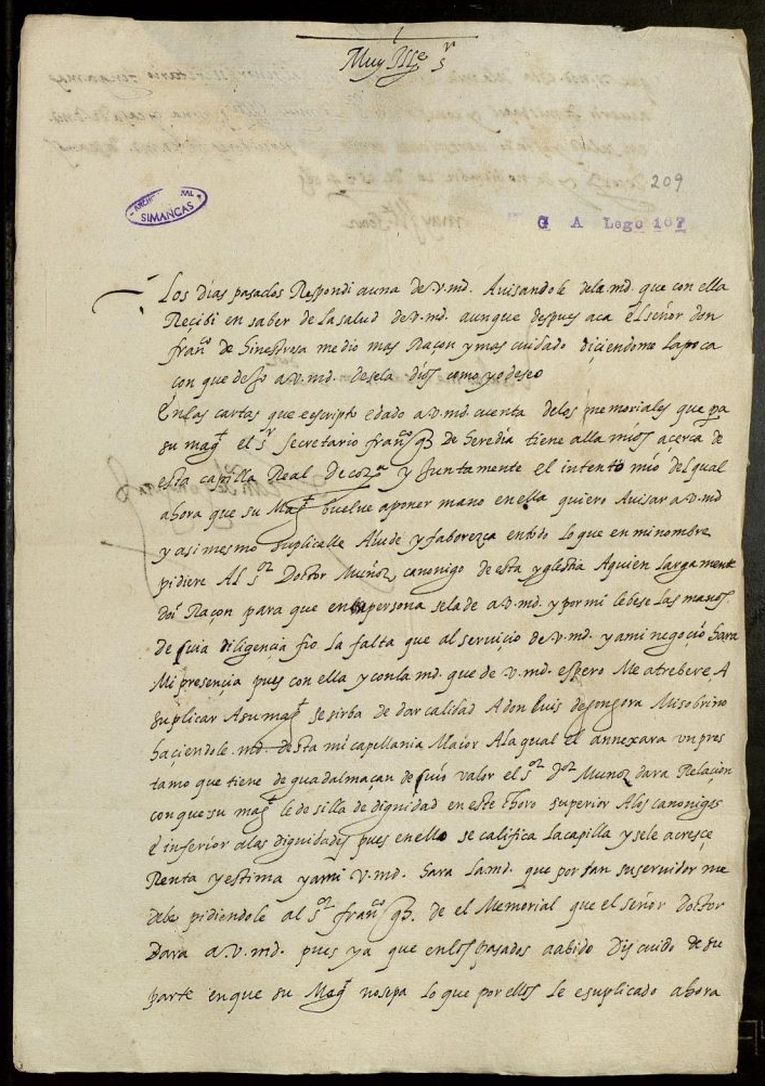 Muy Ille sr
209
ARCHIVO GENERAL
SIMANCAS
G A Lego 167
Los dias pasados Respondi a una de v.md. Avisandole dela md. que con ella
Reçibi en saber de la salud de v.md. aunque despues aca el señor don
franco de hinestrosa me dio mas Raçon y mas cuidado diçiendome la poca
con que dexo a v.md. desela dios como yo deseo
En las cartas que e escripto e dado a v.md. cuenta delos memoriales que pa
su magt el sr secretario franco de heredia tiene alla mios açerca de
esta capilla Real de cora y juntamente el intento mio del qual
ahora que su Magt buelve a poner mano en ella quiero Avisar a v.md
y asi mesmo suplicalle Aiude y faborezca en todo lo que en mi nombre
pidiere Al sor Doctor Muñoz, canonigo de esta yglesia A quien largamente
doi Raçon para que en persona sela de a v.md. y por mi le bese las manos
de cuia diligençia fio la falta que al serviçio de v.md. y a mi negoçio hara
Mi presençia pues con ella y con la md. que de v.md. espero Me atrebere A
suplicar A su magt se sirba de dar calidad A don luis de gongora Mi sobrino
haciendole .md. desta mi capellania Maior A la qual el annexara un pres
tamo que tiene de guadalmaçan de cuio valor el sor dor Muñoz dara Relaçion
con que su magt le de silla de dignidad en este choro superior A los canonigos
e inferior a las dignidades pues en ello se califica La capilla y se le acresçe
Renta y estima y a mi v.md. hara la md. que por tan su servidor me
debe pidiendole al sor franco de el Memorial que el señor Doctor
Dara a v.md. pues ya que en los pasados a abido Descuido de su
parte en que su Magt no sepa lo que por ellos le e suplicado ahora